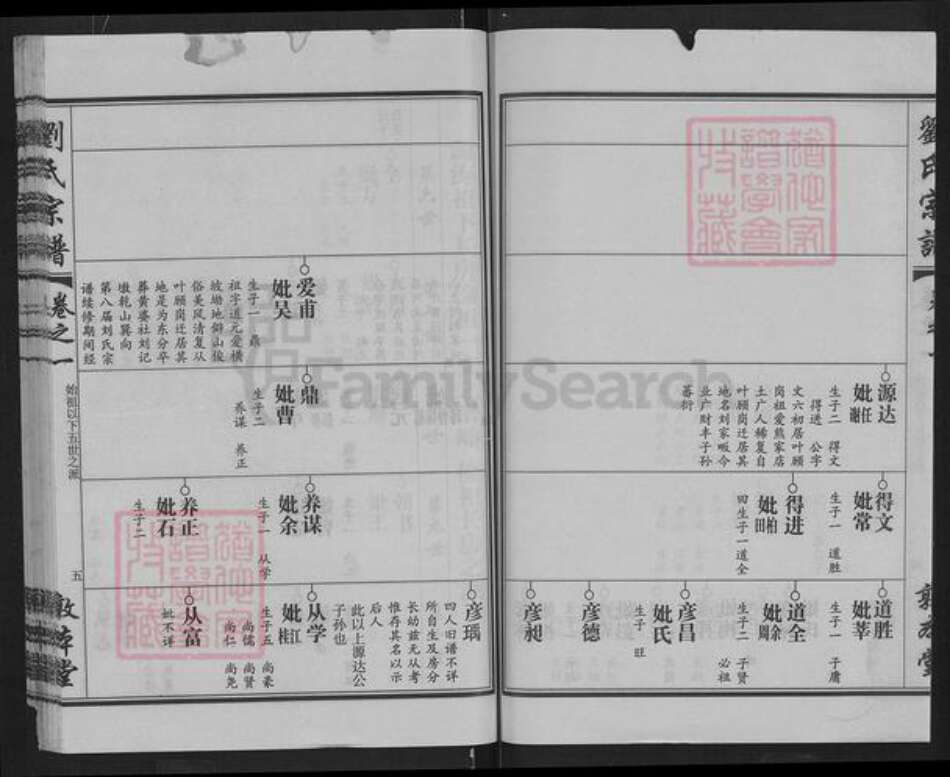 劉氏宗譜
源达
妣任
谢
生子二 得文
得进 公字
文六初居叶顾
岗祖爱熊家店
土广人稀复自
叶顾岗迁居其
地名刘家畈今
业广财丰子孙
蕃衍
得文
妣常
生子一 道胜
得进
妣柏
田
田生子一道全
道胜
妣莘
生子一 子庸
道全
妣余
周
生子二 子贤
必祖
彦昌
妣氏
生子一 旺
彦德
彦昶
劉氏宗谱
卷之一
始祖以下五世之派
五
敦薛堂
爱甫
妣吴
生子一 鼎
祖字道元爱横
坡塝地僻山俊
俗美风清复从
叶顾岗迁居其
地是为东分卒
葬黄婆社刘记
墩乾山巽向
第八届刘氏宗
谱续修期间经
鼎
妣曹
生子二
养谋 养正
养谋
妣余
生子一 从学
养正
妣石
生子二
彦瑀
四人旧谱不详
所自生及房分
长幼兹无从考
惟存其名以示
后人
此以上源达公
子孙也
从学
妣江
桂
生子五 尚豪
尚儒 尚贤
尚仁 尚尧
从富
妣不详
FamilySearch